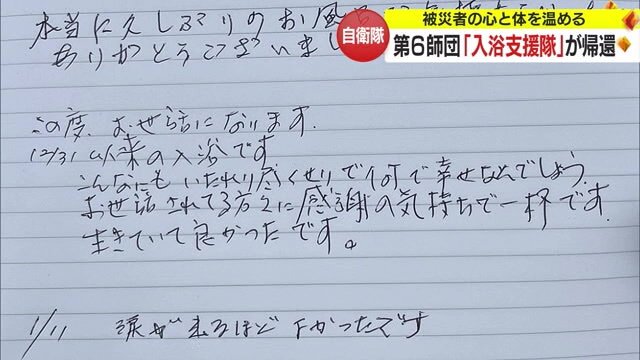 被災者の心と体を温める
自衛隊
第6師団「入浴支援隊」が帰還
本当に久しぶりのお風
ありがとうございまし
この度、お世話になります。
12/31 以来の入浴です
こんなにもいたれり尽くせりで何て幸せなんでしょう。
お世話されてる方々に感謝の気持ちで一杯です。
生きていて良かったです。
1/11 涙が出るほど
かったです